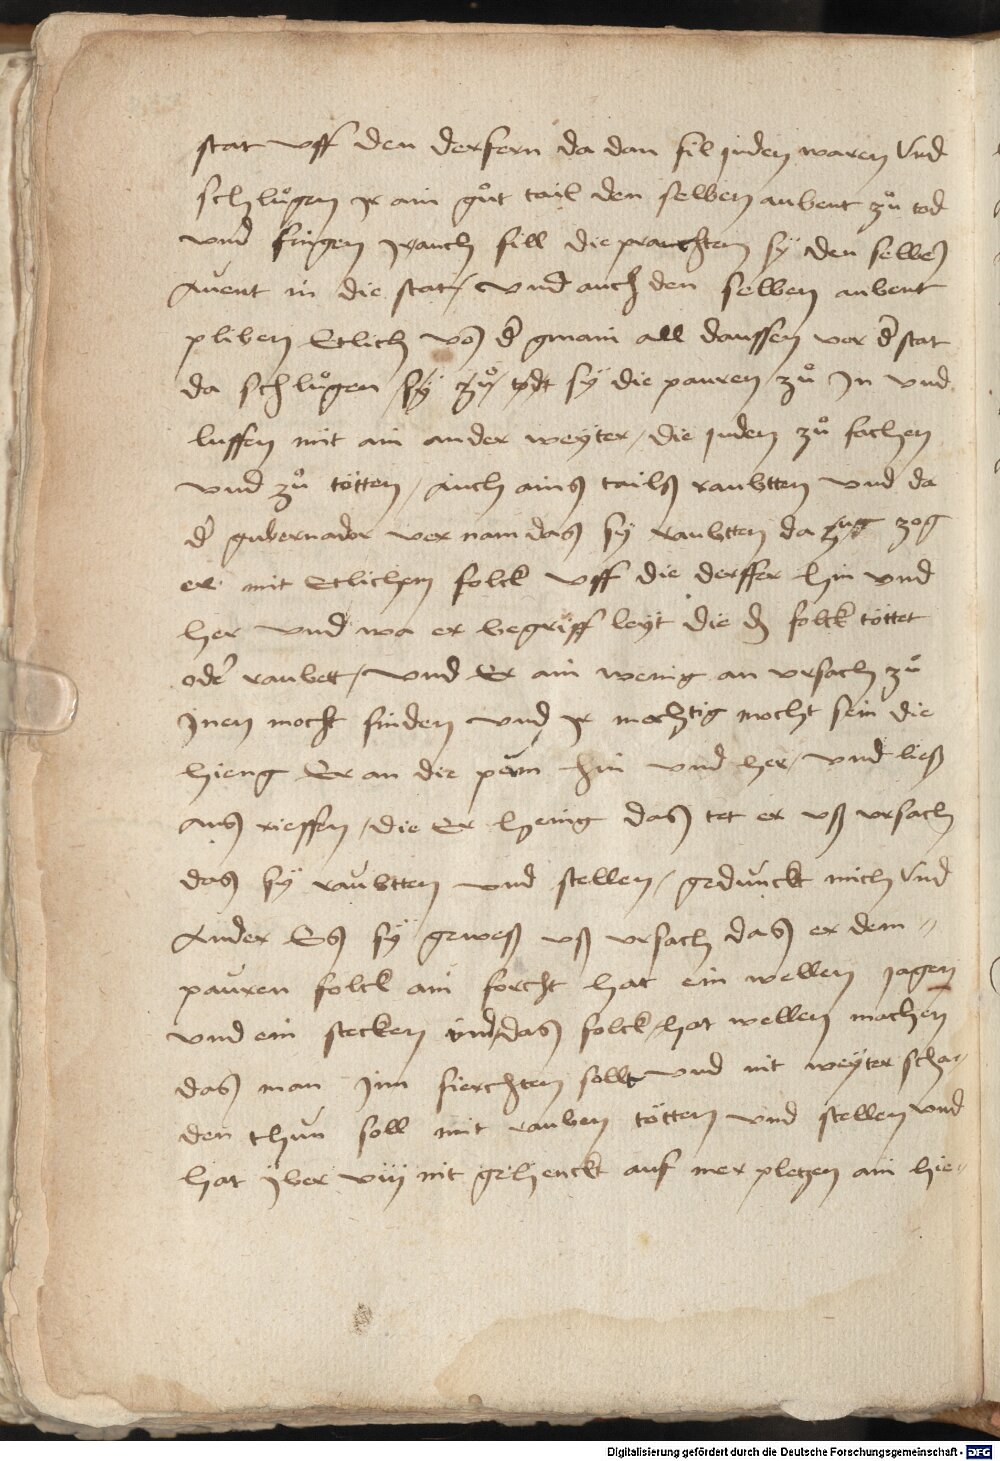 stat uff den derfern da dan fil juden waren Und
schlůgen Ir ain gůt tail den selben aubent zů tod
und fingen Ir auch fill die prauchten sÿ den selbeñ
Auent in die stat / und auch den selben aubent
pliben Etlich võ d᷑ gmain all daussen vor d᷑ stat
da schlůgen sÿ zů todt sÿ die pauren zů In und
luffen mit ain ander weyter / die juden zů fachen
und zů tötten / Auch ains tails raubtten und da
d᷑ gubernador ver nam das sy raubtten da zug zog
er mit Etlichem folck uff die derffer hin und
her und wa er begriff leÿt die dz folck töttet
ode᷑ raubett / und Er ain wenig an ursach zů
Inen mocht finden und Ir mechtig mocht sein die
hieng Er an die peum hin und her / und ließ
aus rieffen / die Er hieng das tet er uß ursach
das sÿ raubtten und stellen / gedunckt mich Und
Ander Es sÿ geweß uß ursach das er dem
pauren folck ain forcht hat ein wellen jagen
und ein stecken und das folck / hat wellen machen
das man Im fierchten sollt und nit weÿter scha-
den thun soll mit rauben tötten und stellen und
hat Iber viij nit gehenckt auf mer pletzen ain hie-
Digitalisierung gefördert durch die Deutsche Forschungsgemeinschaft - DFG